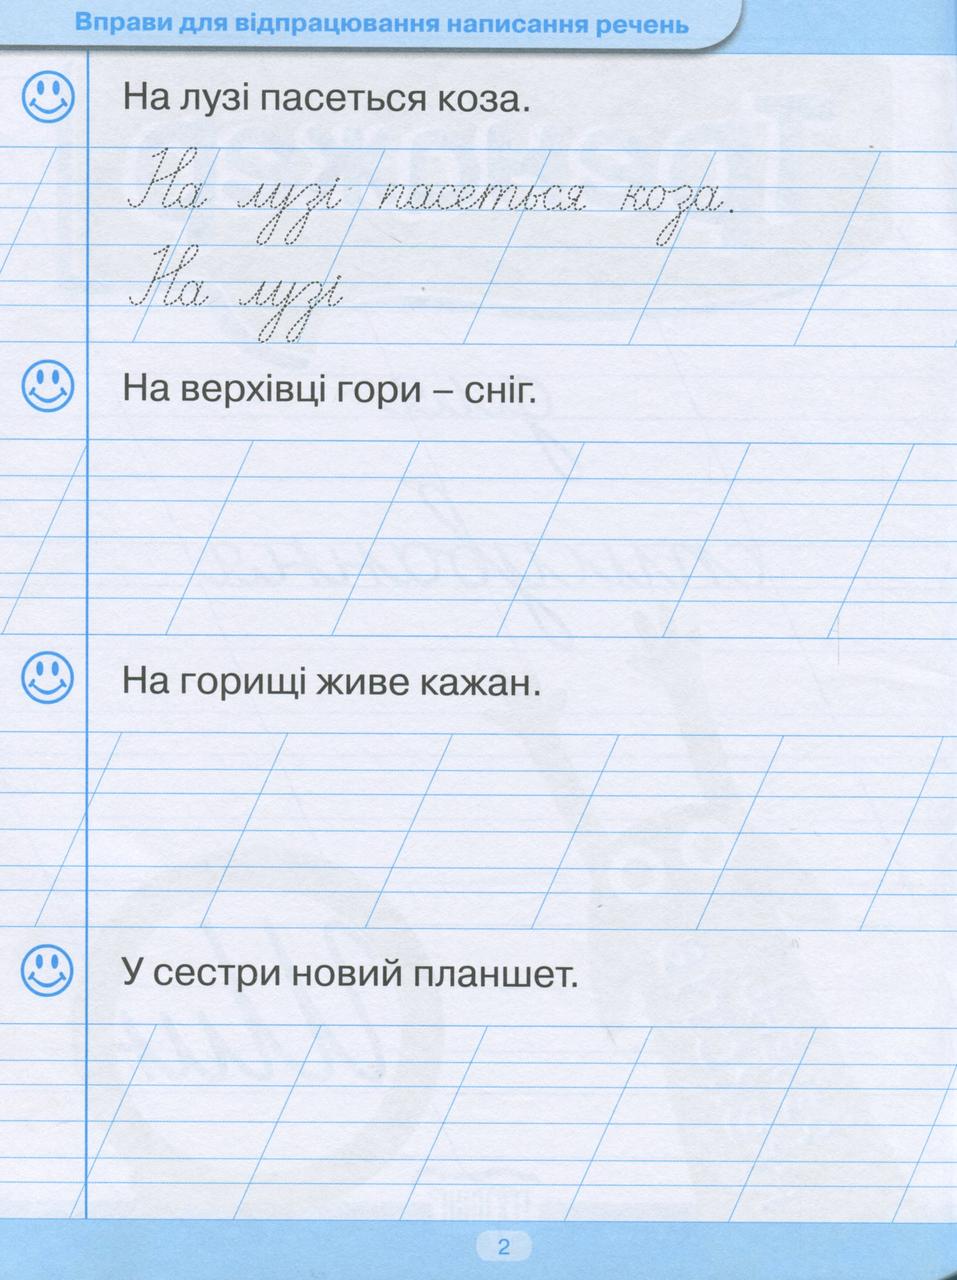 Вправи для відпрацювання написання речень
На лузі пасеться коза.
На лузі пасеться коза.
На лузі
На верхівці гори – сніг.
На горищі живе кажан.
У сестри новий планшет.
2